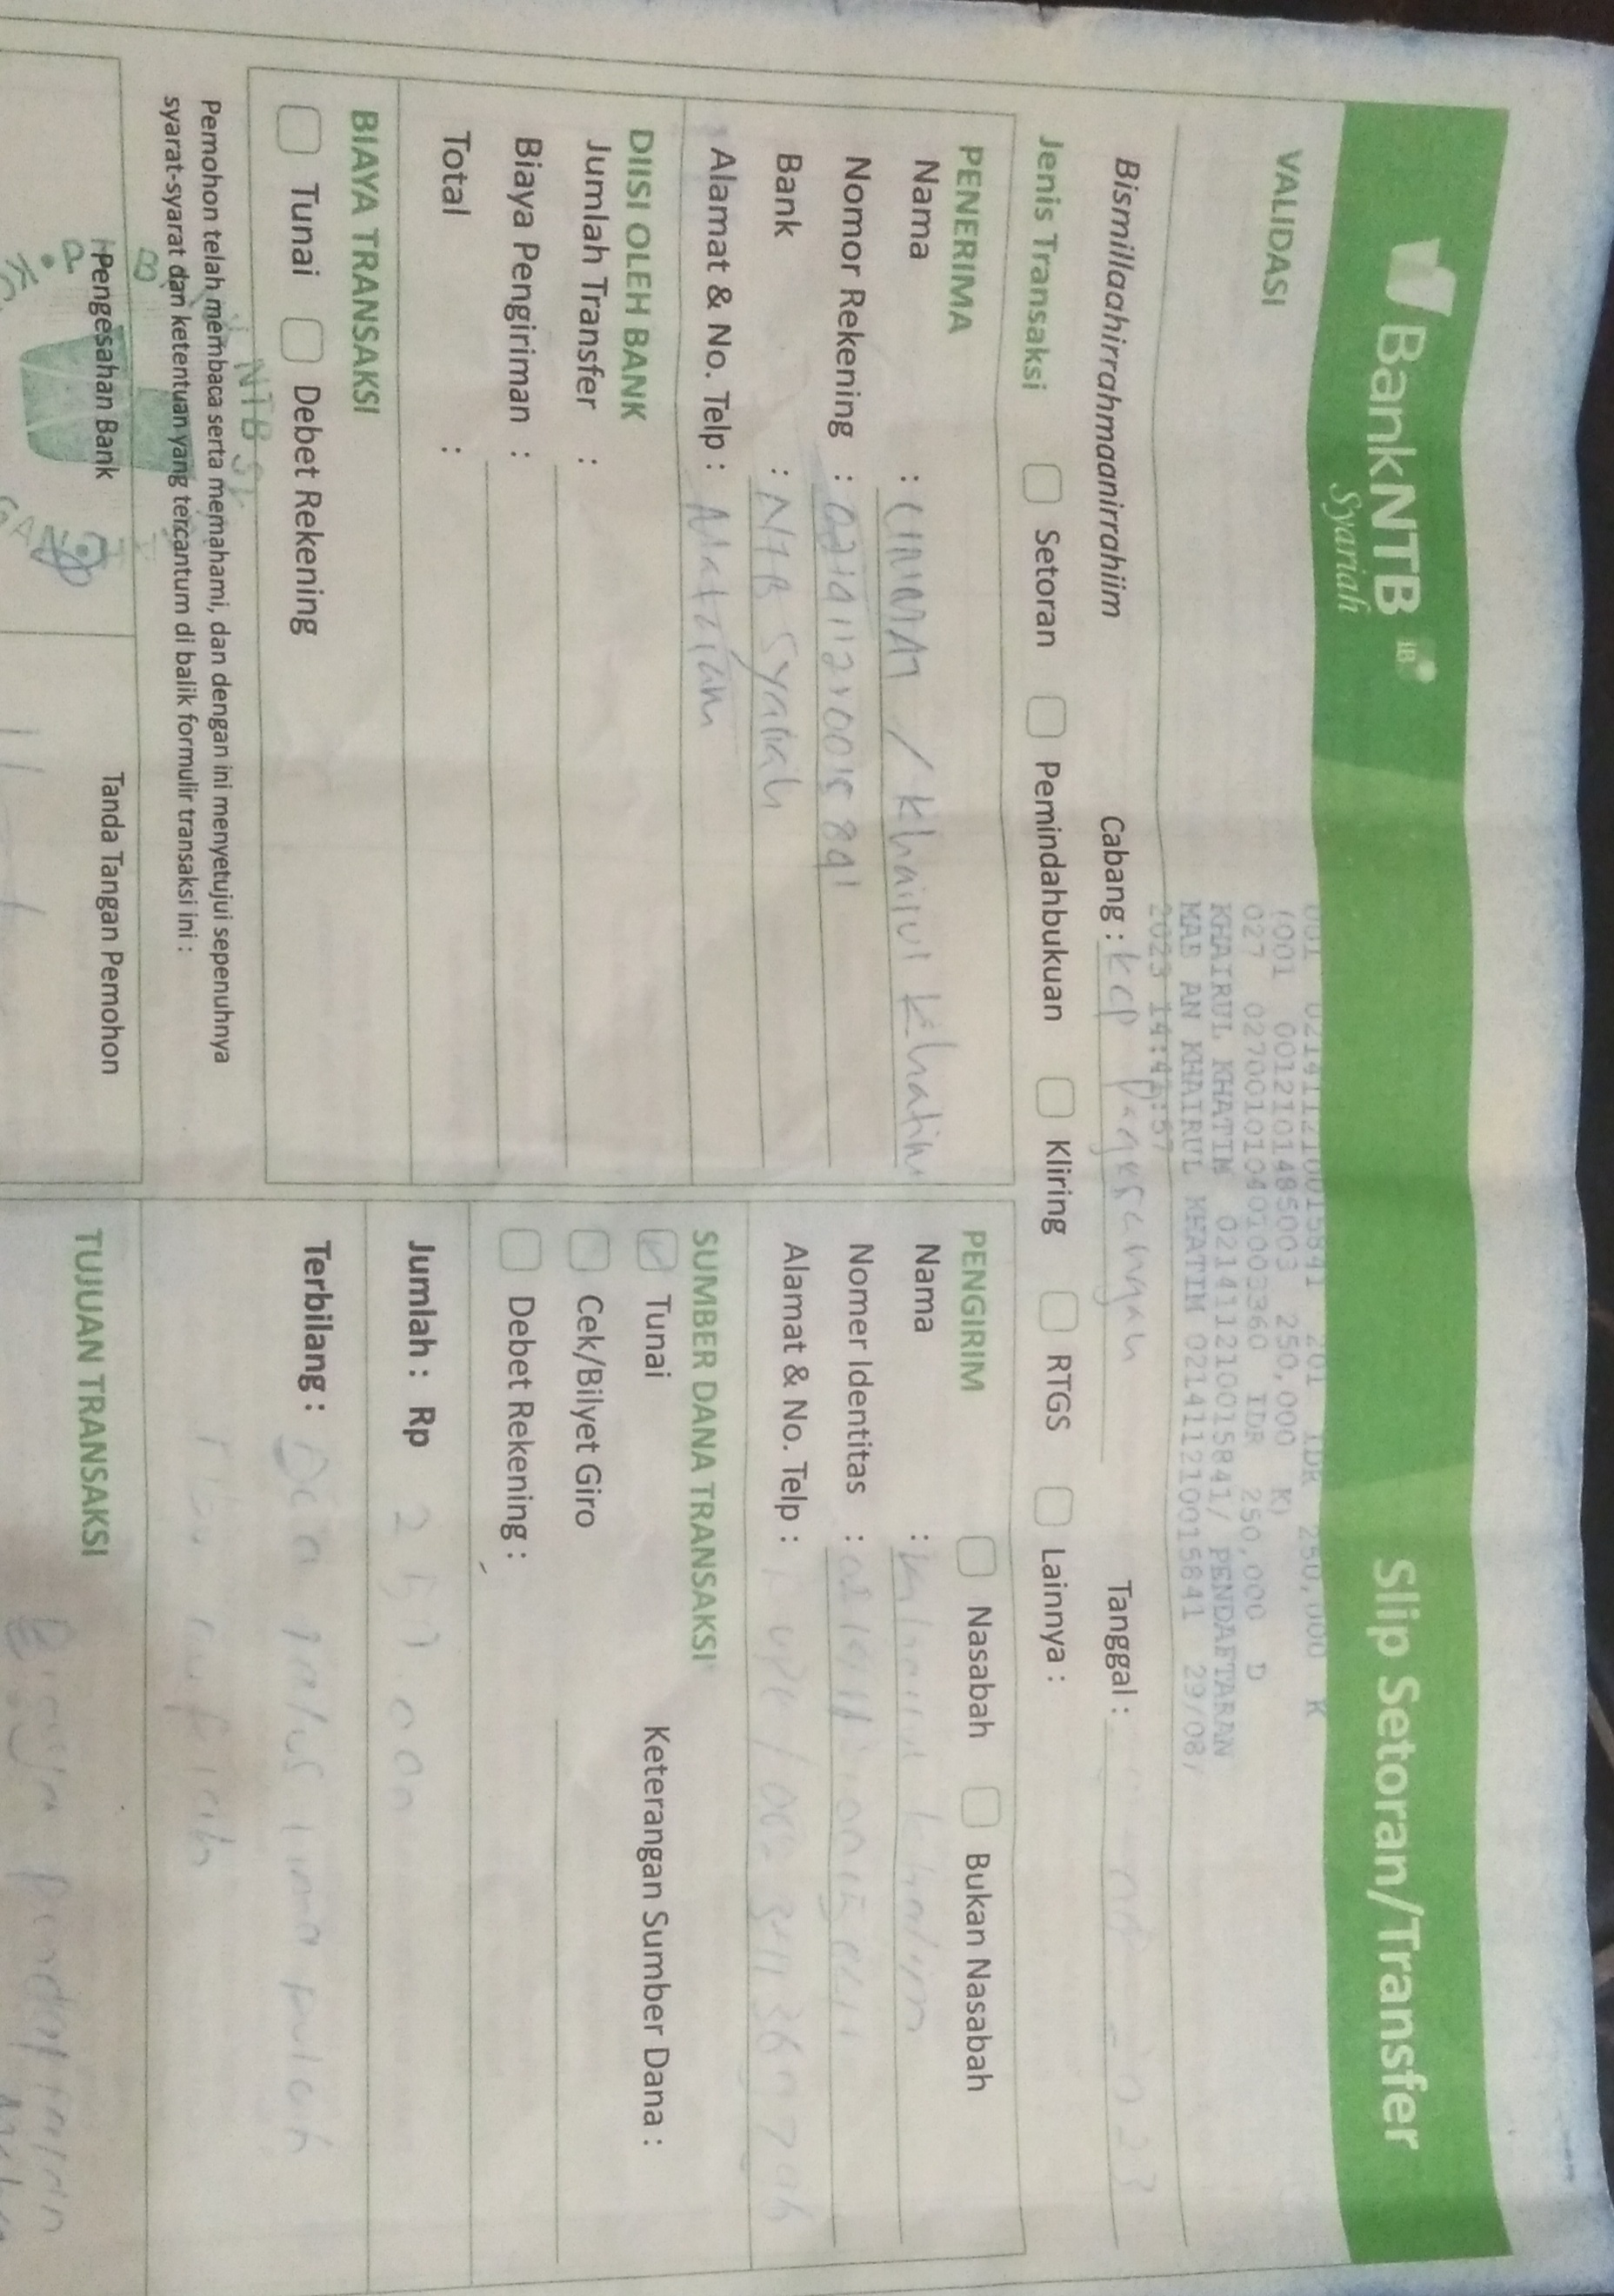 BankNTB iB
Syariah
Slip Setoran/Transfer
VALIDASI
001 021411210015841 201 IDR 250,000 K
(001 0012101485003 250,000 K)
027 0270010104010003360 IDR 250,000 D
KHAIRUL KHATIM 021411210015841/ PENDAFTARAN
MAB AN KHAIRUL KHATIM 021411210015841 29/08/
2023 14:41:57
Bismillaahirrahmaanirrahiim
Cabang : KCP Pagesangan
Tanggal : 2023
Jenis Transaksi
Setoran
Pemindahbukuan
Kliring
RTGS
Lainnya :
PENERIMA
Nama : / Khairul Khatim
Nomor Rekening :
Bank : NTB Syariah
Alamat & No. Telp : Mataram
DIISI OLEH BANK
Jumlah Transfer :
Biaya Pengiriman :
Total :
BIAYA TRANSAKSI
Tunai
Debet Rekening
Pemohon telah membaca serta memahami, dan dengan ini menyetujui sepenuhnya
syarat-syarat dan ketentuan yang tercantum di balik formulir transaksi ini :
Pengesahan Bank
Tanda Tangan Pemohon
PENGIRIM
Nasabah
Bukan Nasabah
Nama : Khairul Khatim
Nomer Identitas :
Alamat & No. Telp :
SUMBER DANA TRANSAKSI
Tunai
Keterangan Sumber Dana :
Cek/Bilyet Giro
Debet Rekening :
Jumlah : Rp 250.000
Terbilang : Dua ratus lima puluh
ribu rupiah
TUJUAN TRANSAKSI
Biaya pendaftaran